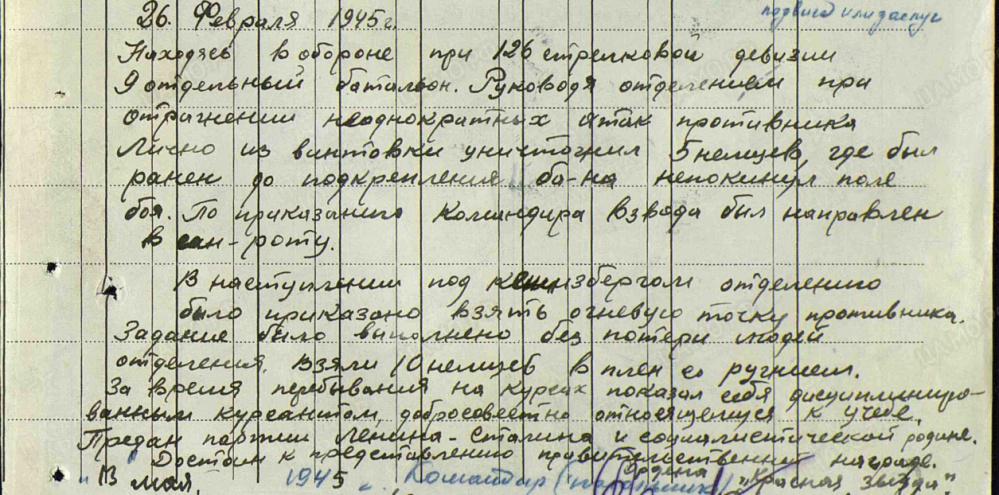 26. Февраля 1945г.
подвига или заслуг
Находясь в обороне при 126 стрелковой девизии
9 отдельный батальон. Руководя отделением при
отражении неоднократных атак противника
лично из винтовки уничтожил 5 немцев, где был
ранен до подкрепления ба-на непокинул поле
боя. По приказанию Командира взвода был направлен
в сан-роту.
В наступлении под Кенизбергом отделению
было приказано взять огневую точку противника.
Задание было выполнено без потери людей
отделения. Взяли 10 немцев в плен со ружием.
За время пребывания на курсах показал себя дисциплиниро-
ванным курсантом, добросовестно относящемуся к учебе.
Предан партии Ленина-Сталина и социалистической родине.
Достоин к представлению правительственной награде.
ордена "Красная Звезда"
"13 мая, 1945 г. Командир (начальник)